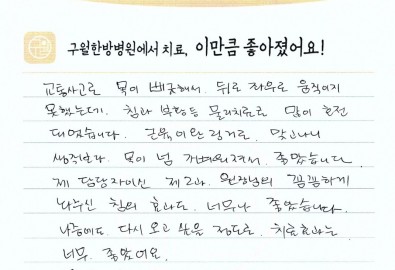 구월한방병원에서 치료, 이만큼 좋아졌어요!
교통사고로 목이 삐긋해서 뒤로 좌우로 움직이지
못했는데. 침과 부항등 물리치료로 많이 호전
되었습니다. 근육이완 링거로. 맞고나니
생각보다. 목이 넘 가벼워져서. 좋았습니다
제 담당자이신 제2과. 원장님의 꼼꼼하게
놔주신 침의 효과도. 너무나 좋았습니다.
나중에도 다시 오고 싶을 정도로. 치료효과는
너무. 좋았어요.